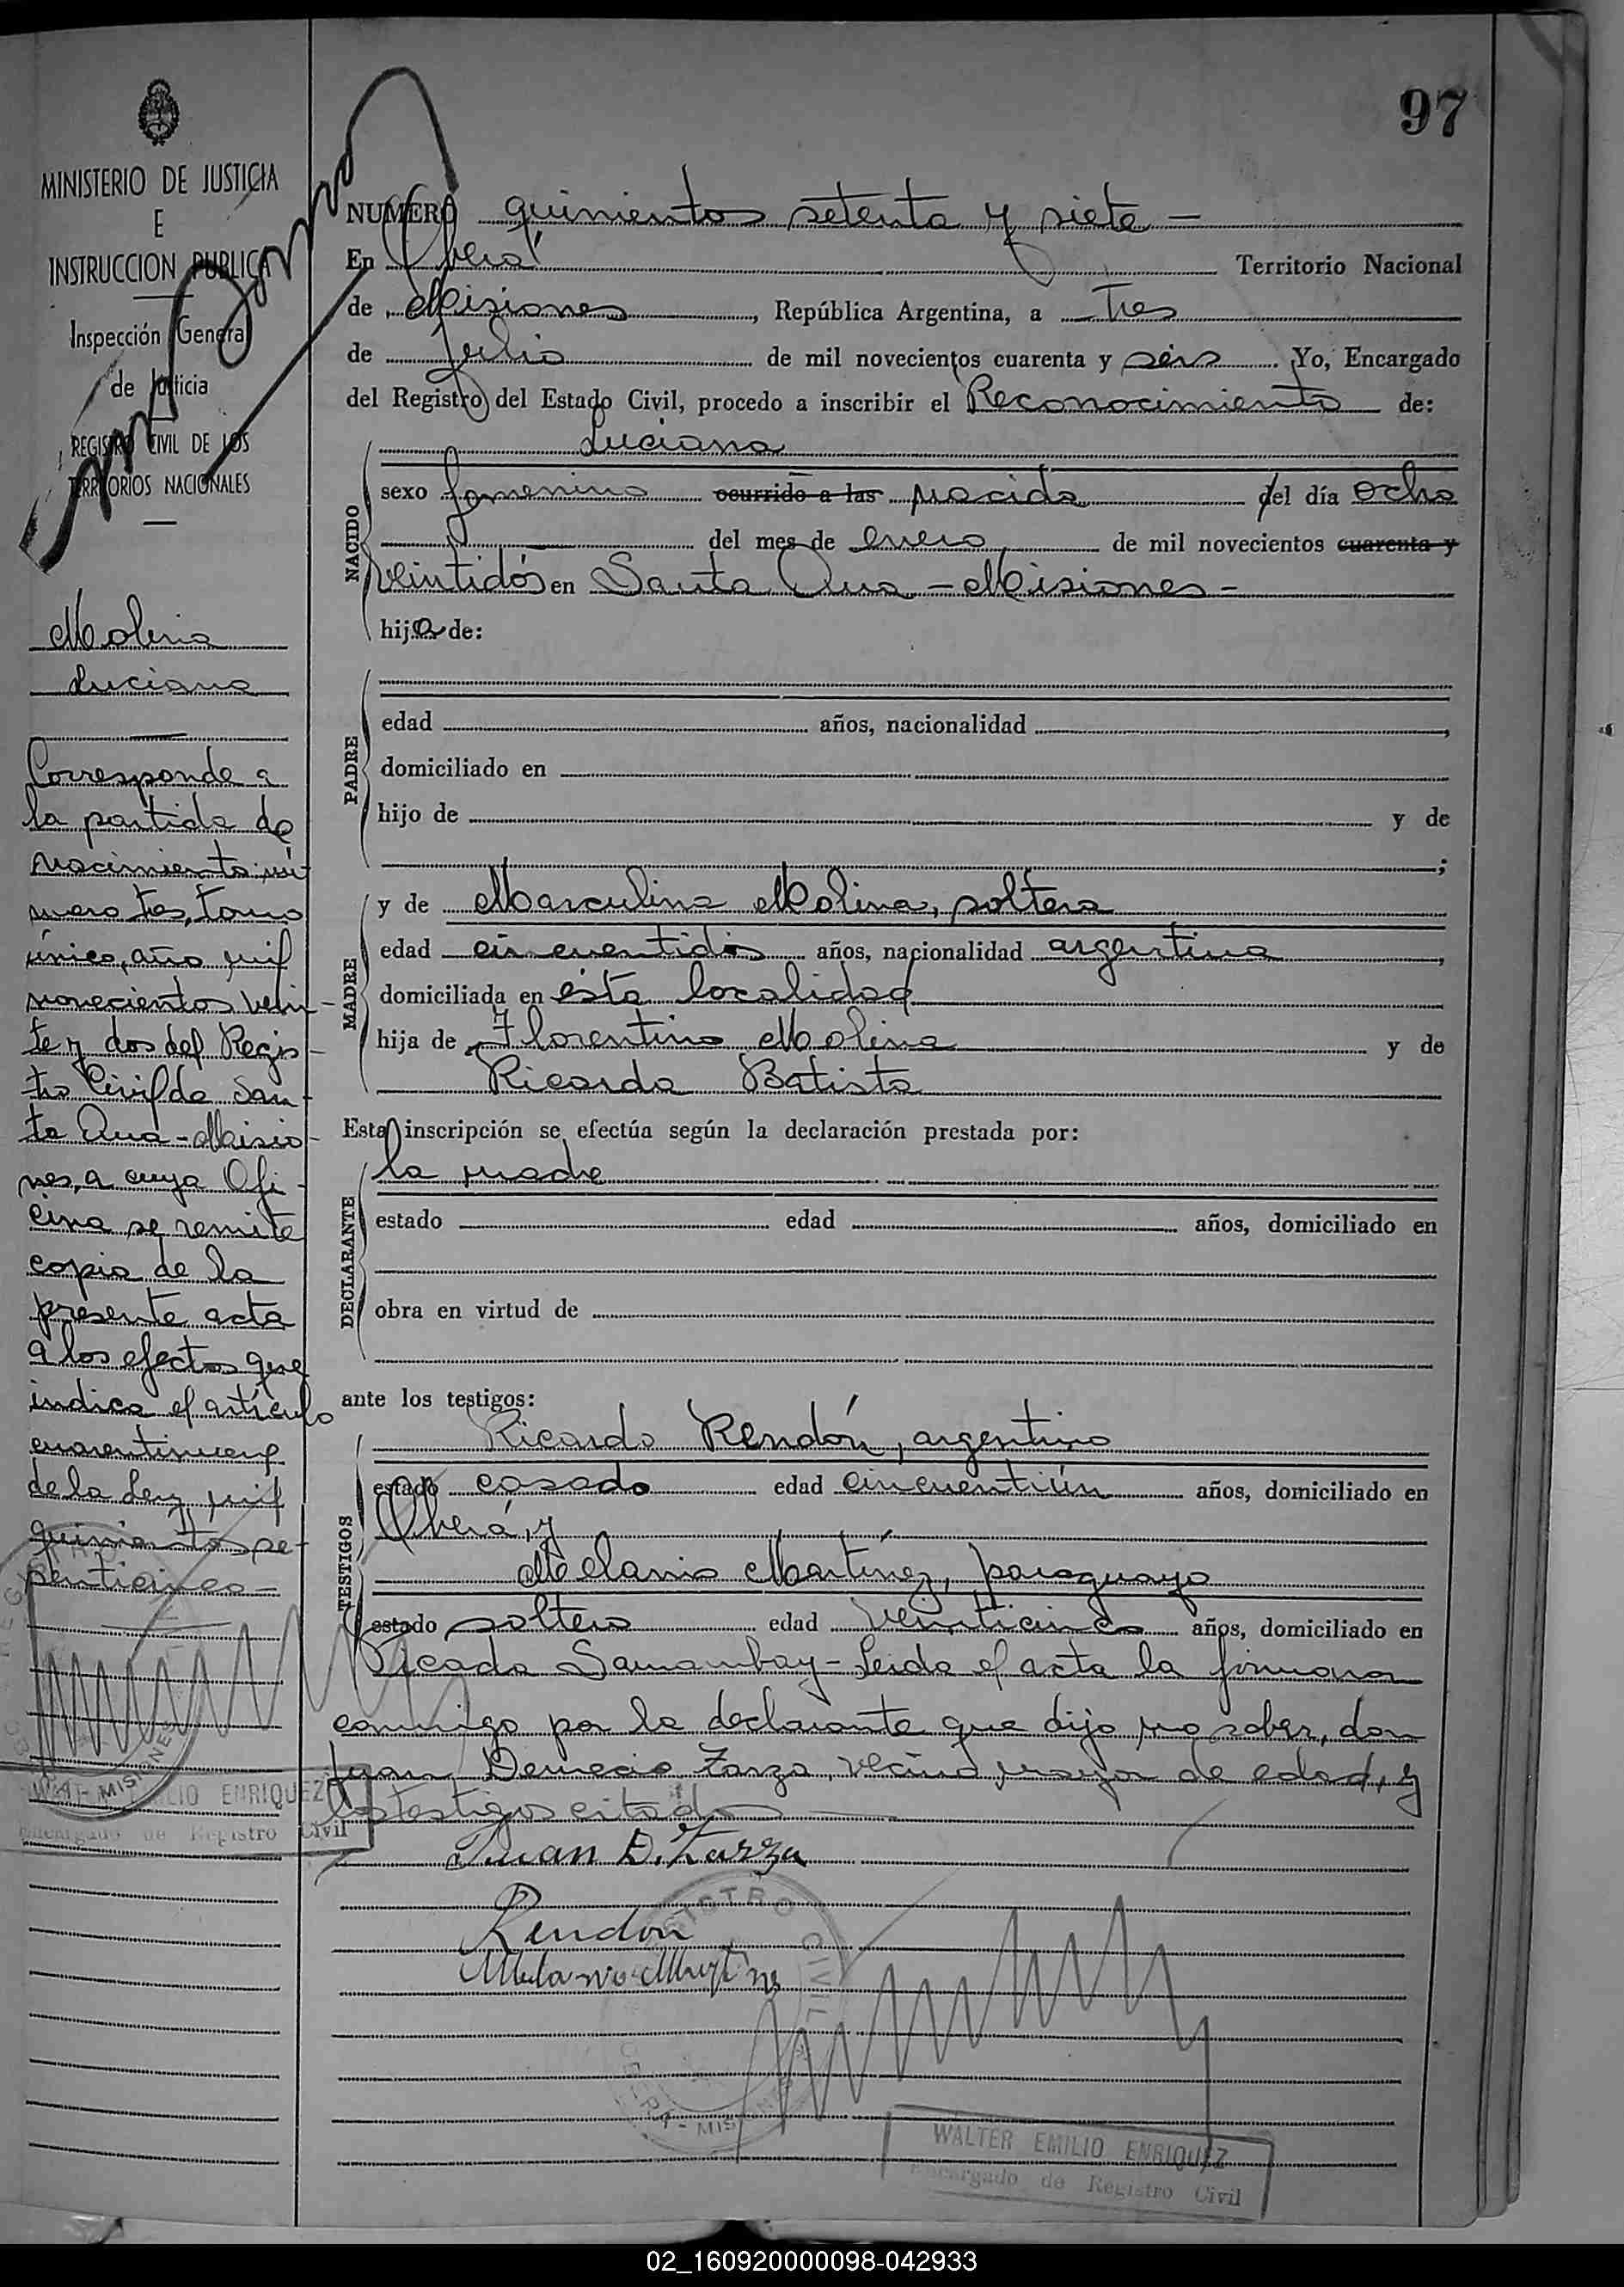 97
MINISTERIO DE JUSTICIA
E
INSTRUCCION PUBLICA
Inspección General
de Justicia
REGISTRO CIVIL DE LOS
TERRITORIOS NACIONALES
Molina
Luciana
Corresponde a
la partida de
nacimiento nú-
mero tres, tomo
único, año mil
novecientos vein-
te y dos del Regis-
tro Civil de San-
ta Ana - Misio-
nes, a cuya Ofi-
cina se remite
copia de la
presente acta
a los efectos que
indica el artículo
cuarentinueve
de la Ley mil
quinientos se-
senticinco-
NUMERO quinientos setenta y siete -
En Oberá Territorio Nacional
de Misiones, República Argentina, a tres
de Julio de mil novecientos cuarenta y seis. Yo, Encargado
del Registro del Estado Civil, procedo a inscribir el Reconocimiento de:
NACIDO
Luciana
sexo femenino ocurrido a las nacida del día ocho
del mes de enero de mil novecientos cuarenta y
veintidós en Santa Ana - Misiones -
hija de:
PADRE
edad años, nacionalidad
domiciliado en
hijo de y de
;
MADRE
y de Masculina Molina, soltera
edad cincuentidos años, nacionalidad argentina,
domiciliada en ésta localidad
hija de Florentino Molina y de
Ricarda Batista
Esta inscripción se efectúa según la declaración prestada por:
DECLARANTE
la madre
estado edad años, domiciliado en
obra en virtud de
ante los testigos:
TESTIGOS
Ricardo Rendón, argentino
estado casado edad cincuentiún años, domiciliado en
Oberá, y
Melanio Martínez, paraguayo
estado soltero edad veinticinco años, domiciliado en
Picada Samambay - Leida el acta la firmaron
conmigo por la declarante que dijo no saber, don
Juan Demecio Zarza, vecino, mayor de edad, y
los testigos citados
Juan D. Zarza
Rendón
Melanio
REGISTRO CIVIL
OBERA - MISIONES
WALTER EMILIO ENRIQUEZ
Encargado de Registro Civil
WALTER EMILIO ENRIQUEZ
Encargado de Registro Civil
02_160920000098-042933